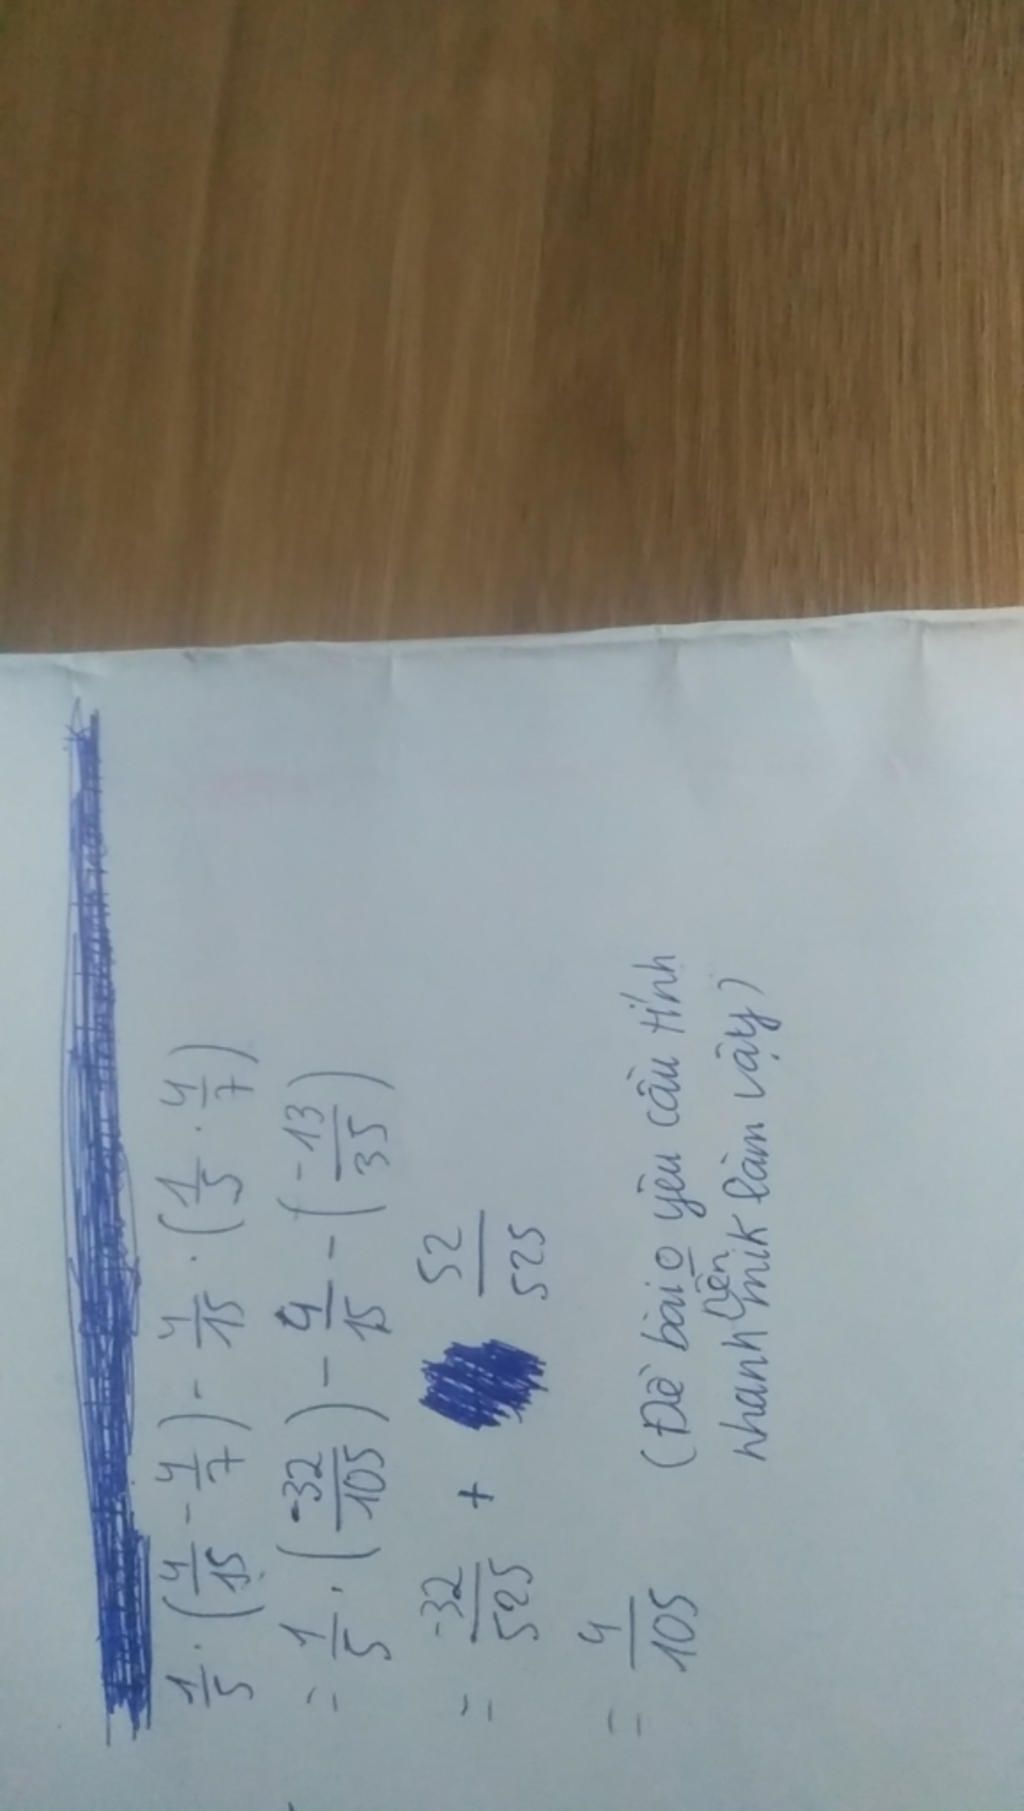 1/5 . (4/15 - 4/7) - 4/15 . (1/5 . 4/7)
= 1/5 . (-32/105) - 4/15 - (-13/35)
= -32/525 + 52/525
= 4/105
(Đề bài o yêu cầu tính
nhanh nên mik làm vậy)